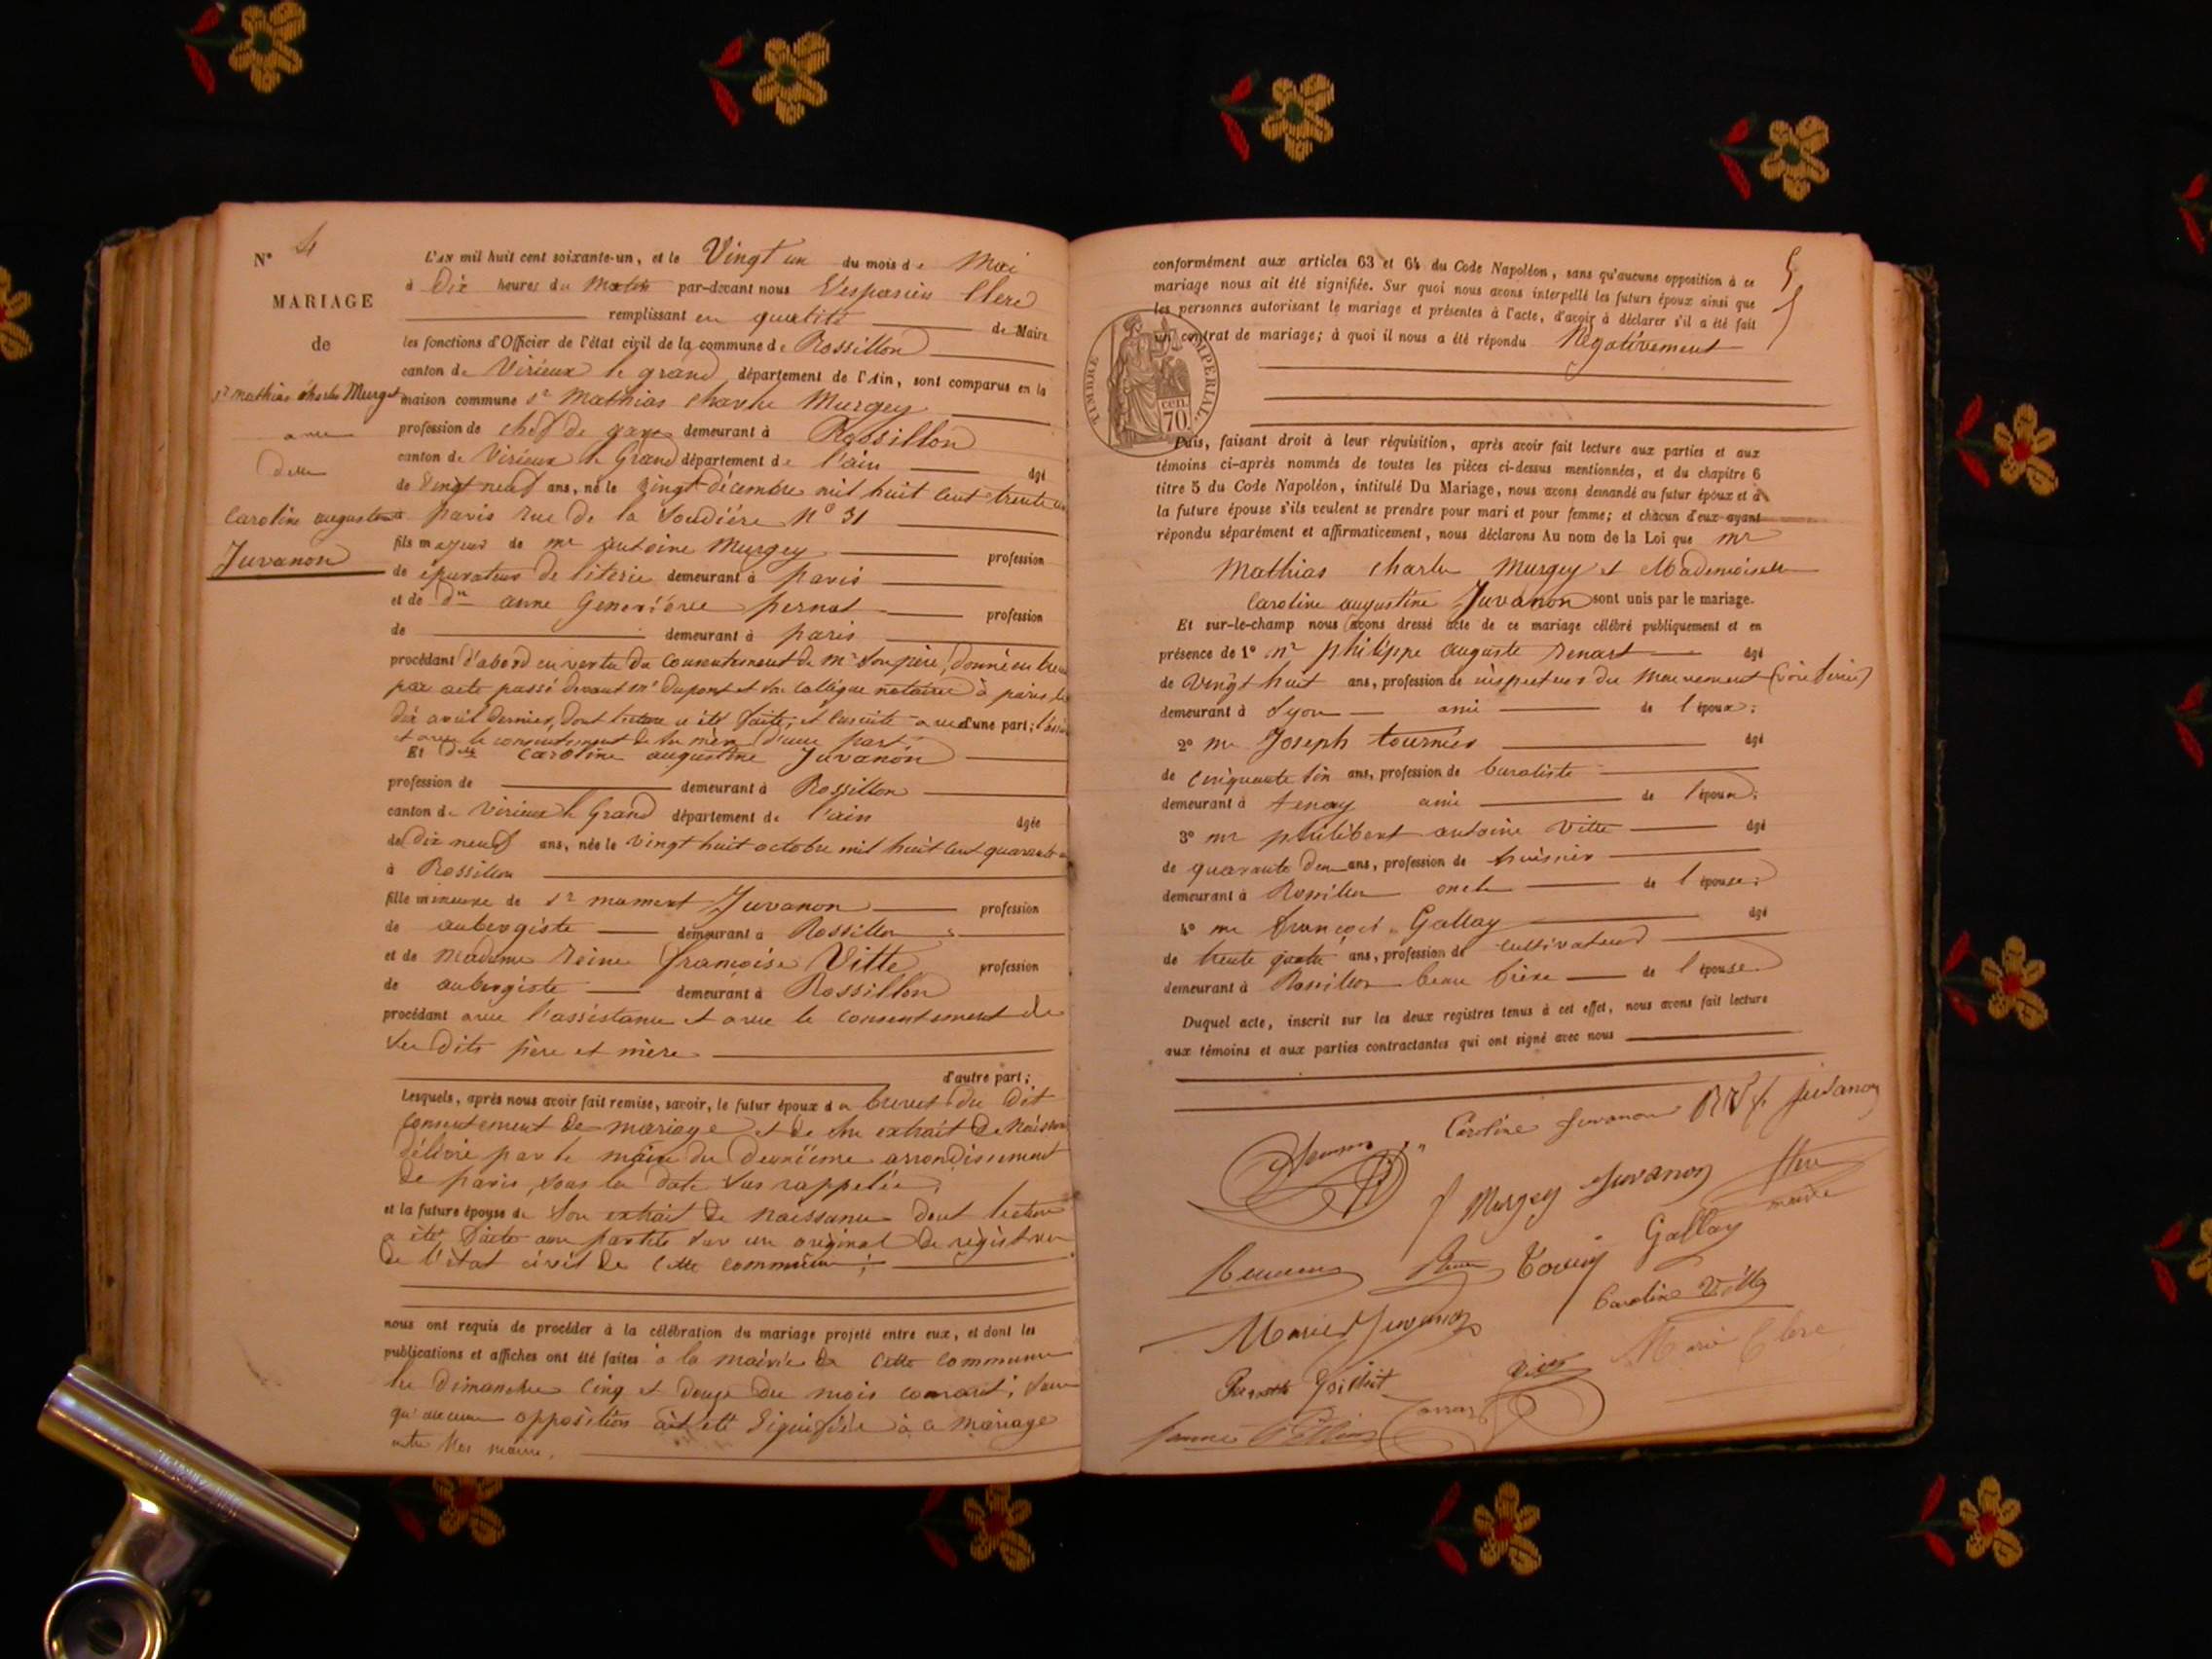 N° 4
MARIAGE
de
Sr mathias charles Murgey
avec
delle
Caroline augustine
Juvanon
L'AN mil huit cent soixante-un, et le Vingt un du mois de Mai
à Dix heures du Matin par-devant nous Vespasien Clerc
remplissant en qualité de Maire
les fonctions d'Officier de l'état civil de la commune de Rossillon
canton de Virieux le grand, département de l'Ain, sont comparus en la
maison commune Sr Mathias Charles Murgey
profession de chef de gare demeurant à Rossillon
canton de Virieux le Grand département de l'ain âgé
de Vingt neuf ans, né le Vingt décembre mil huit cent trente un
paris rue de la Soudiére N° 31
fils majeur de mr antoine Murgey profession
de épurateur de literie demeurant à paris
et de De anne Geneviéve pernot profession
de demeurant à paris
procédant d'abord en vertu du consentement de Mr son père, donné en brevet
par acte passé devant Me dupont et son collègue notaires à paris, le
dix avril dernier, dont lecture a été faite, et ensuite avec d'une part;
et avec le consentement de sa mère d'une part
Et Delle Caroline augustine Juvanon
profession de demeurant à Rossillon
canton de Virieux le Grand département de l'ain âgée
de dix neuf ans, née le vingt huit octobre mil huit cent quarante un
à Rossillon
fille mineure de Sr mamert Juvanon profession
de aubergiste demeurant à Rossillon
et de Madame Reine françoise Vitte profession
de aubergiste demeurant à Rossillon
procédant avec l'assistance et avec le consentement de
ses dits père et mère
d'autre part;
Lesquels, après nous avoir fait remise, savoir, le futur époux du brevet du dit
consentement de mariage et de son extrait de Naissance
délivré par le maire du deuxième arrondissement
de paris, sous la date sus rappelée,
et la future épouse de son extrait de naissance dont lecture
a été faite aux parties sur un original de régistre
de l'état civil de cette commune;
nous ont requis de procéder à la célébration du mariage projeté entre eux, et dont les
publications et affiches ont été faites à la mairie de cette commune
les dimanches cinq et douze du mois courant; sans
qu'aucune opposition ait été signifiée à ce mariage
entre Nos mains.
5
conformément aux articles 63 et 64 du Code Napoléon, sans qu'aucune opposition à ce
mariage nous ait été signifiée. Sur quoi nous avons interpellé les futurs époux ainsi que
les personnes autorisant le mariage et présentes à l'acte, d'avoir à déclarer s'il a été fait
un contrat de mariage; à quoi il nous a été répondu Négativement
TIMBRE IMPERIAL
cen.
70.
Puis, faisant droit à leur réquisition, après avoir fait lecture aux parties et aux
témoins ci-après nommés de toutes les pièces ci-dessus mentionnées, et du chapitre 6
titre 5 du Code Napoléon, intitulé Du Mariage, nous avons demandé au futur époux et à
la future épouse s'ils veulent se prendre pour mari et pour femme; et chacun d'eux ayant
répondu séparément et affirmativement, nous déclarons Au nom de la Loi que mr
Mathias charles Murgey et Mademoiselle
Caroline augustine Juvanon sont unis par le mariage.
Et sur-le-champ nous avons dressé acte de ce mariage célébré publiquement et en
présence de 1° mr philippe auguste renart âgé
de Vingt huit ans, profession de inspecteur du Mouvement
demeurant à Lyon ami de l'époux;
2° mr Joseph tournier âgé
de cinquante six ans, profession de buraliste
demeurant à tenay ami de l'époux;
3° mr philibert antoine Vitte âgé
de quarante deux ans, profession de
demeurant à Rossillon oncle de l'épouse;
4° mr françois Gallay âgé
de trente quatre ans, profession de cultivateur
demeurant à Rossillon beau frère de l'épouse.
Duquel acte, inscrit sur les deux registres tenus à cet effet, nous avons fait lecture
aux témoins et aux parties contractantes qui ont signé avec nous
Caroline Juvanon Juvanon
Murgey Juvanon Clerc
maire
Gallay
Marie Juvanon Caroline Vitte
Marie Clerc